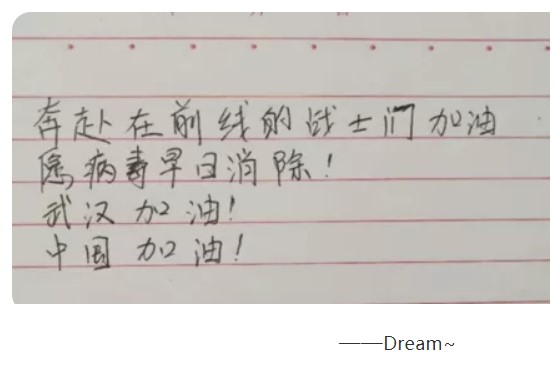 奔赴在前线的战士们加油
愿病毒早日消除!
武汉加油!
中国加油!
——Dream~